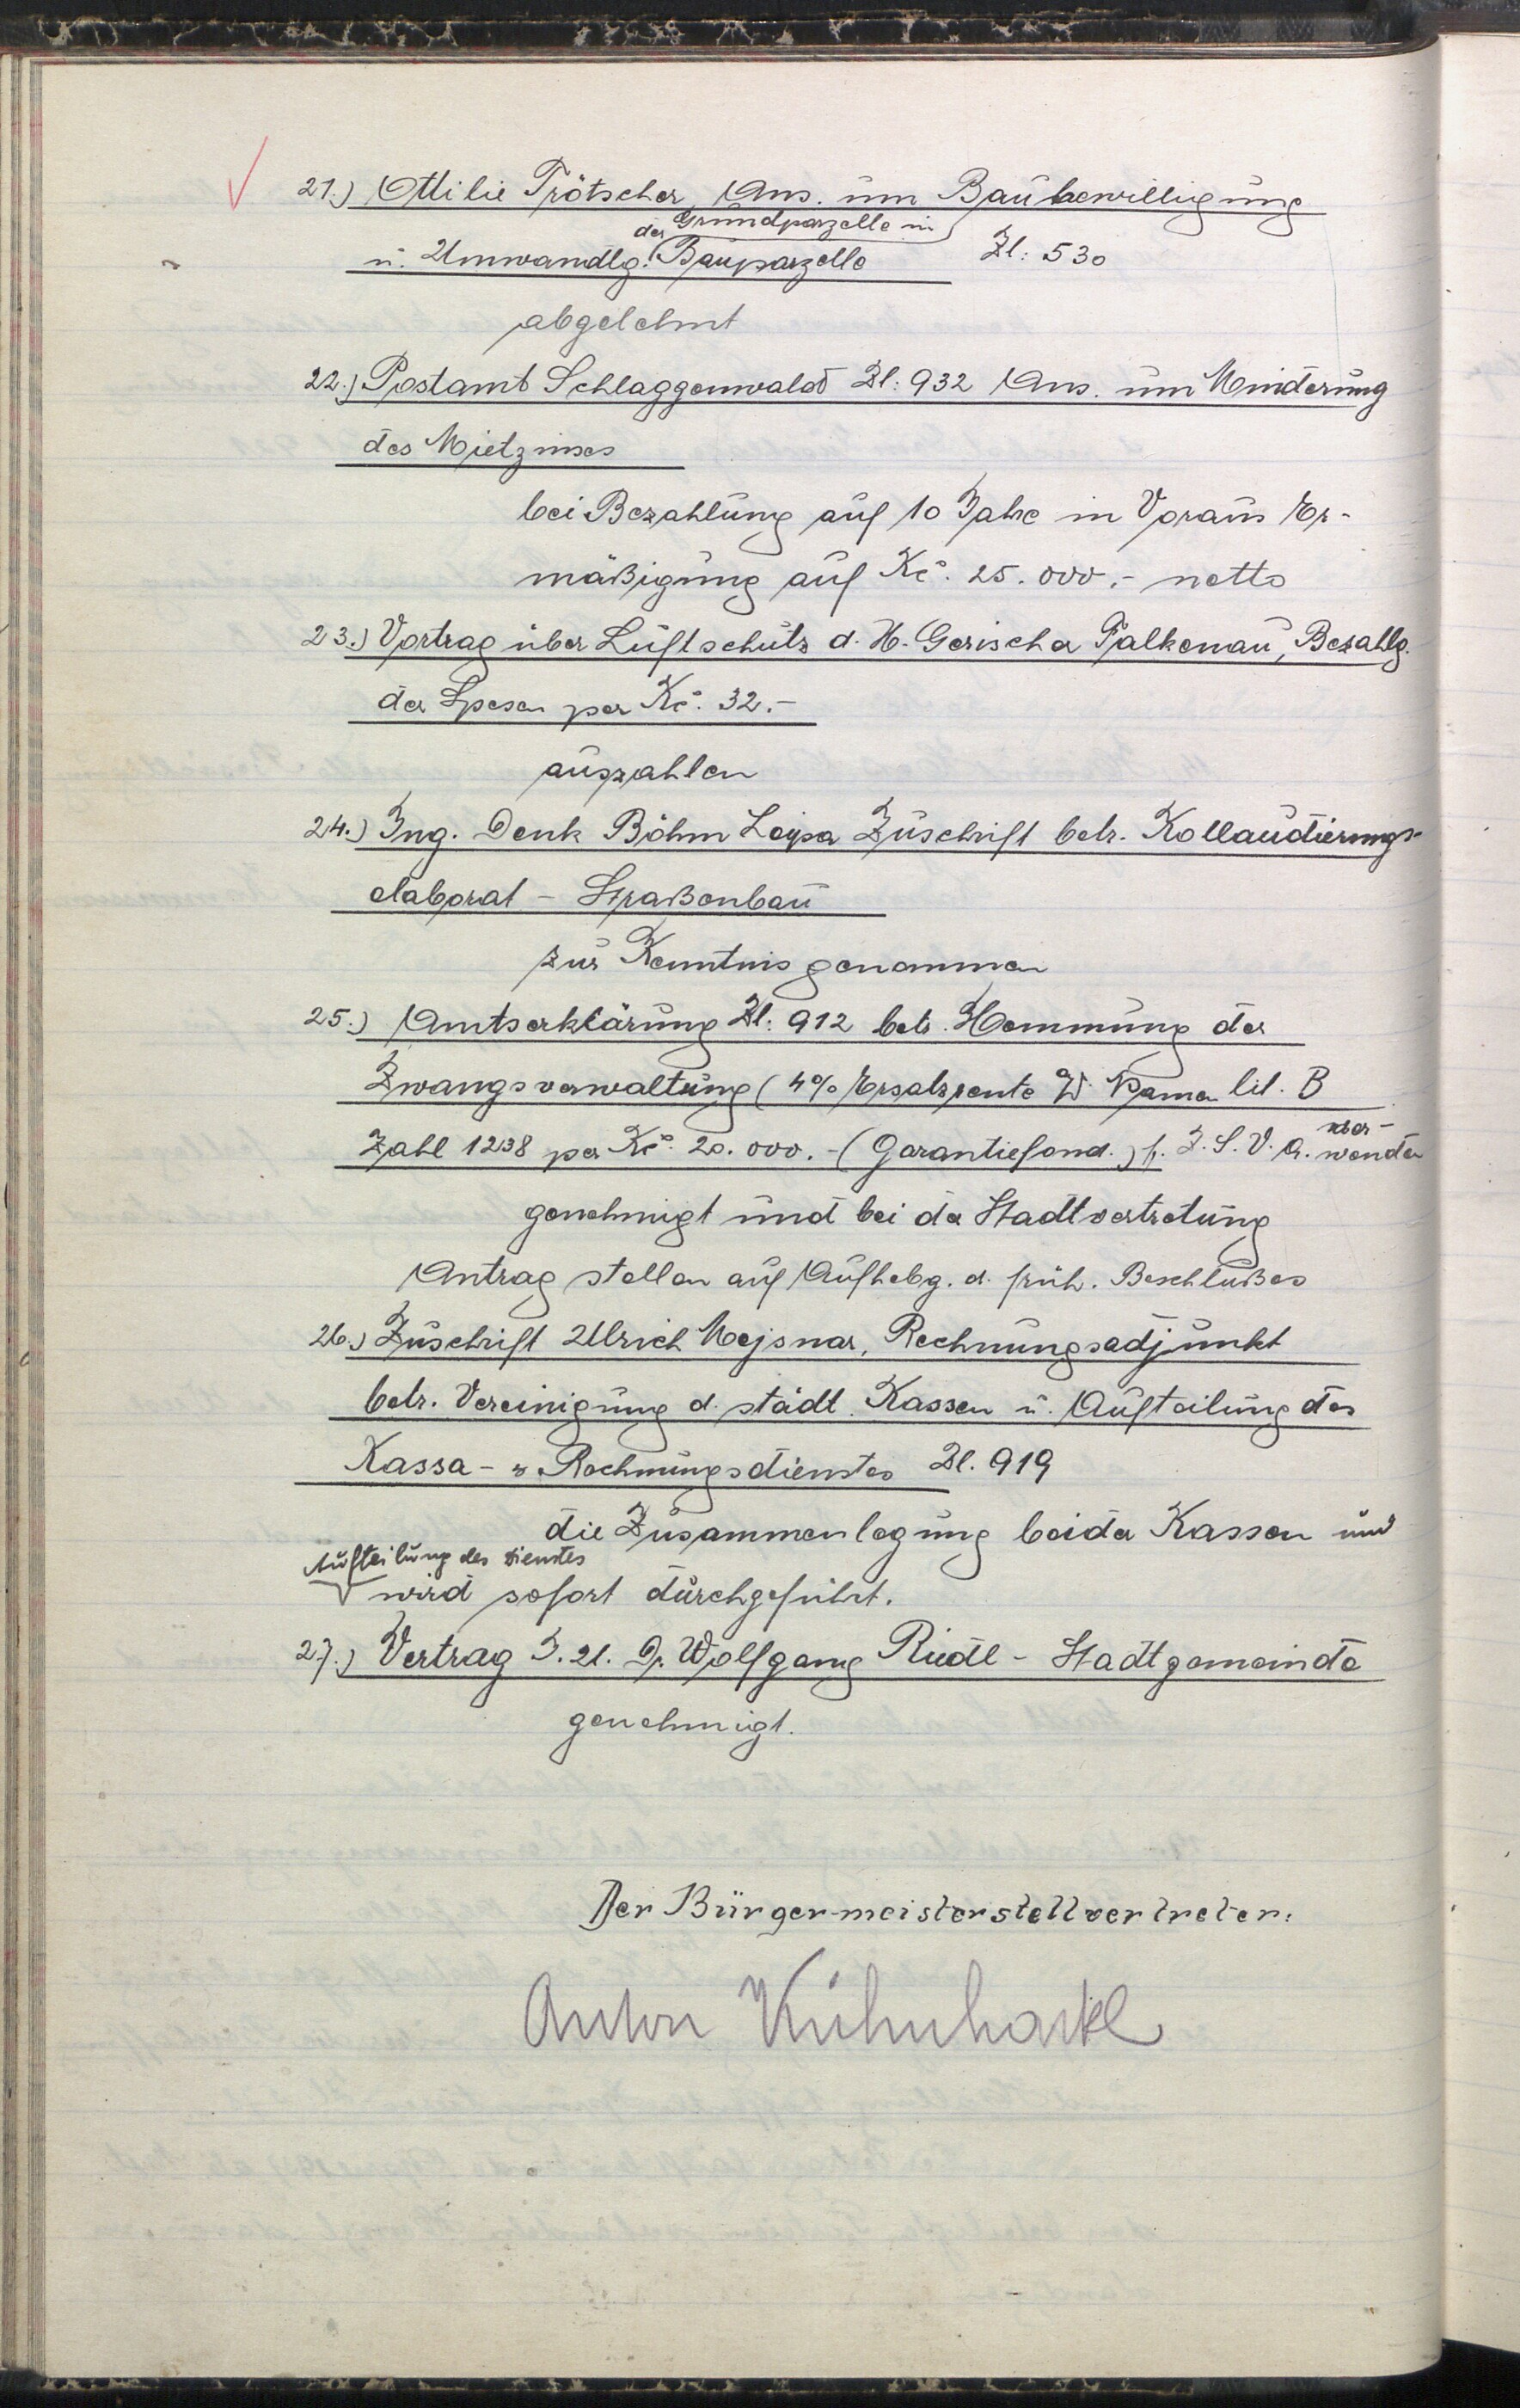 21.) Ottilie Trötscher, Ans. um Baubewilligung
der Grundparzelle in
u. Umwandlg. Bauparzelle Zl: 530
abgelehnt
22.) Postamt Schlaggenwald Zl: 932 Ans. um Minderung
des Mietzinses
bei Bezahlung auf 10 Jahre in Voraus Er-
mäßigung auf Kč. 25.000.- netto
23.) Vortrag über Luftschutz d. H. Gerischer Falkenau, Bezahlg.
der Spesen per Kč. 32.-
auszahlen
24.) Ing. Denk Böhm Leipa Zuschrift betr. Kollaudierungs-
elaborat - Straßenbau
zur Kenntnis genommen
25.) Amtserklärung Zl: 912 betr. Hemmung der
Zwangsverwaltung (4% Ersatzrente lit. B
Zahl 1238 per Kč 20.000.- (Garantiefond.) f. Z. S. V. A. wenden
genehmigt und bei der Stadtvertretung
Antrag stellen auf Aufhebg. d. früh. Beschlußes
26.) Zuschrift Ulrich Mejsnar, Rechnungsadjunkt
betr. Vereinigung d. städt. Kassen u. Aufteilung des
Kassa- u. Rechnungsdienstes Zl. 919
die Zusammenlegung beider Kassen und
Aufteilung des Dienstes
wird sofort durchgeführt.
27.) Vertrag J. U. Dr. Wolfgang Riedl - Stadtgemeinde
genehmigt.
Der Bürgermeisterstellvertreter:
Anton Kühnhackl